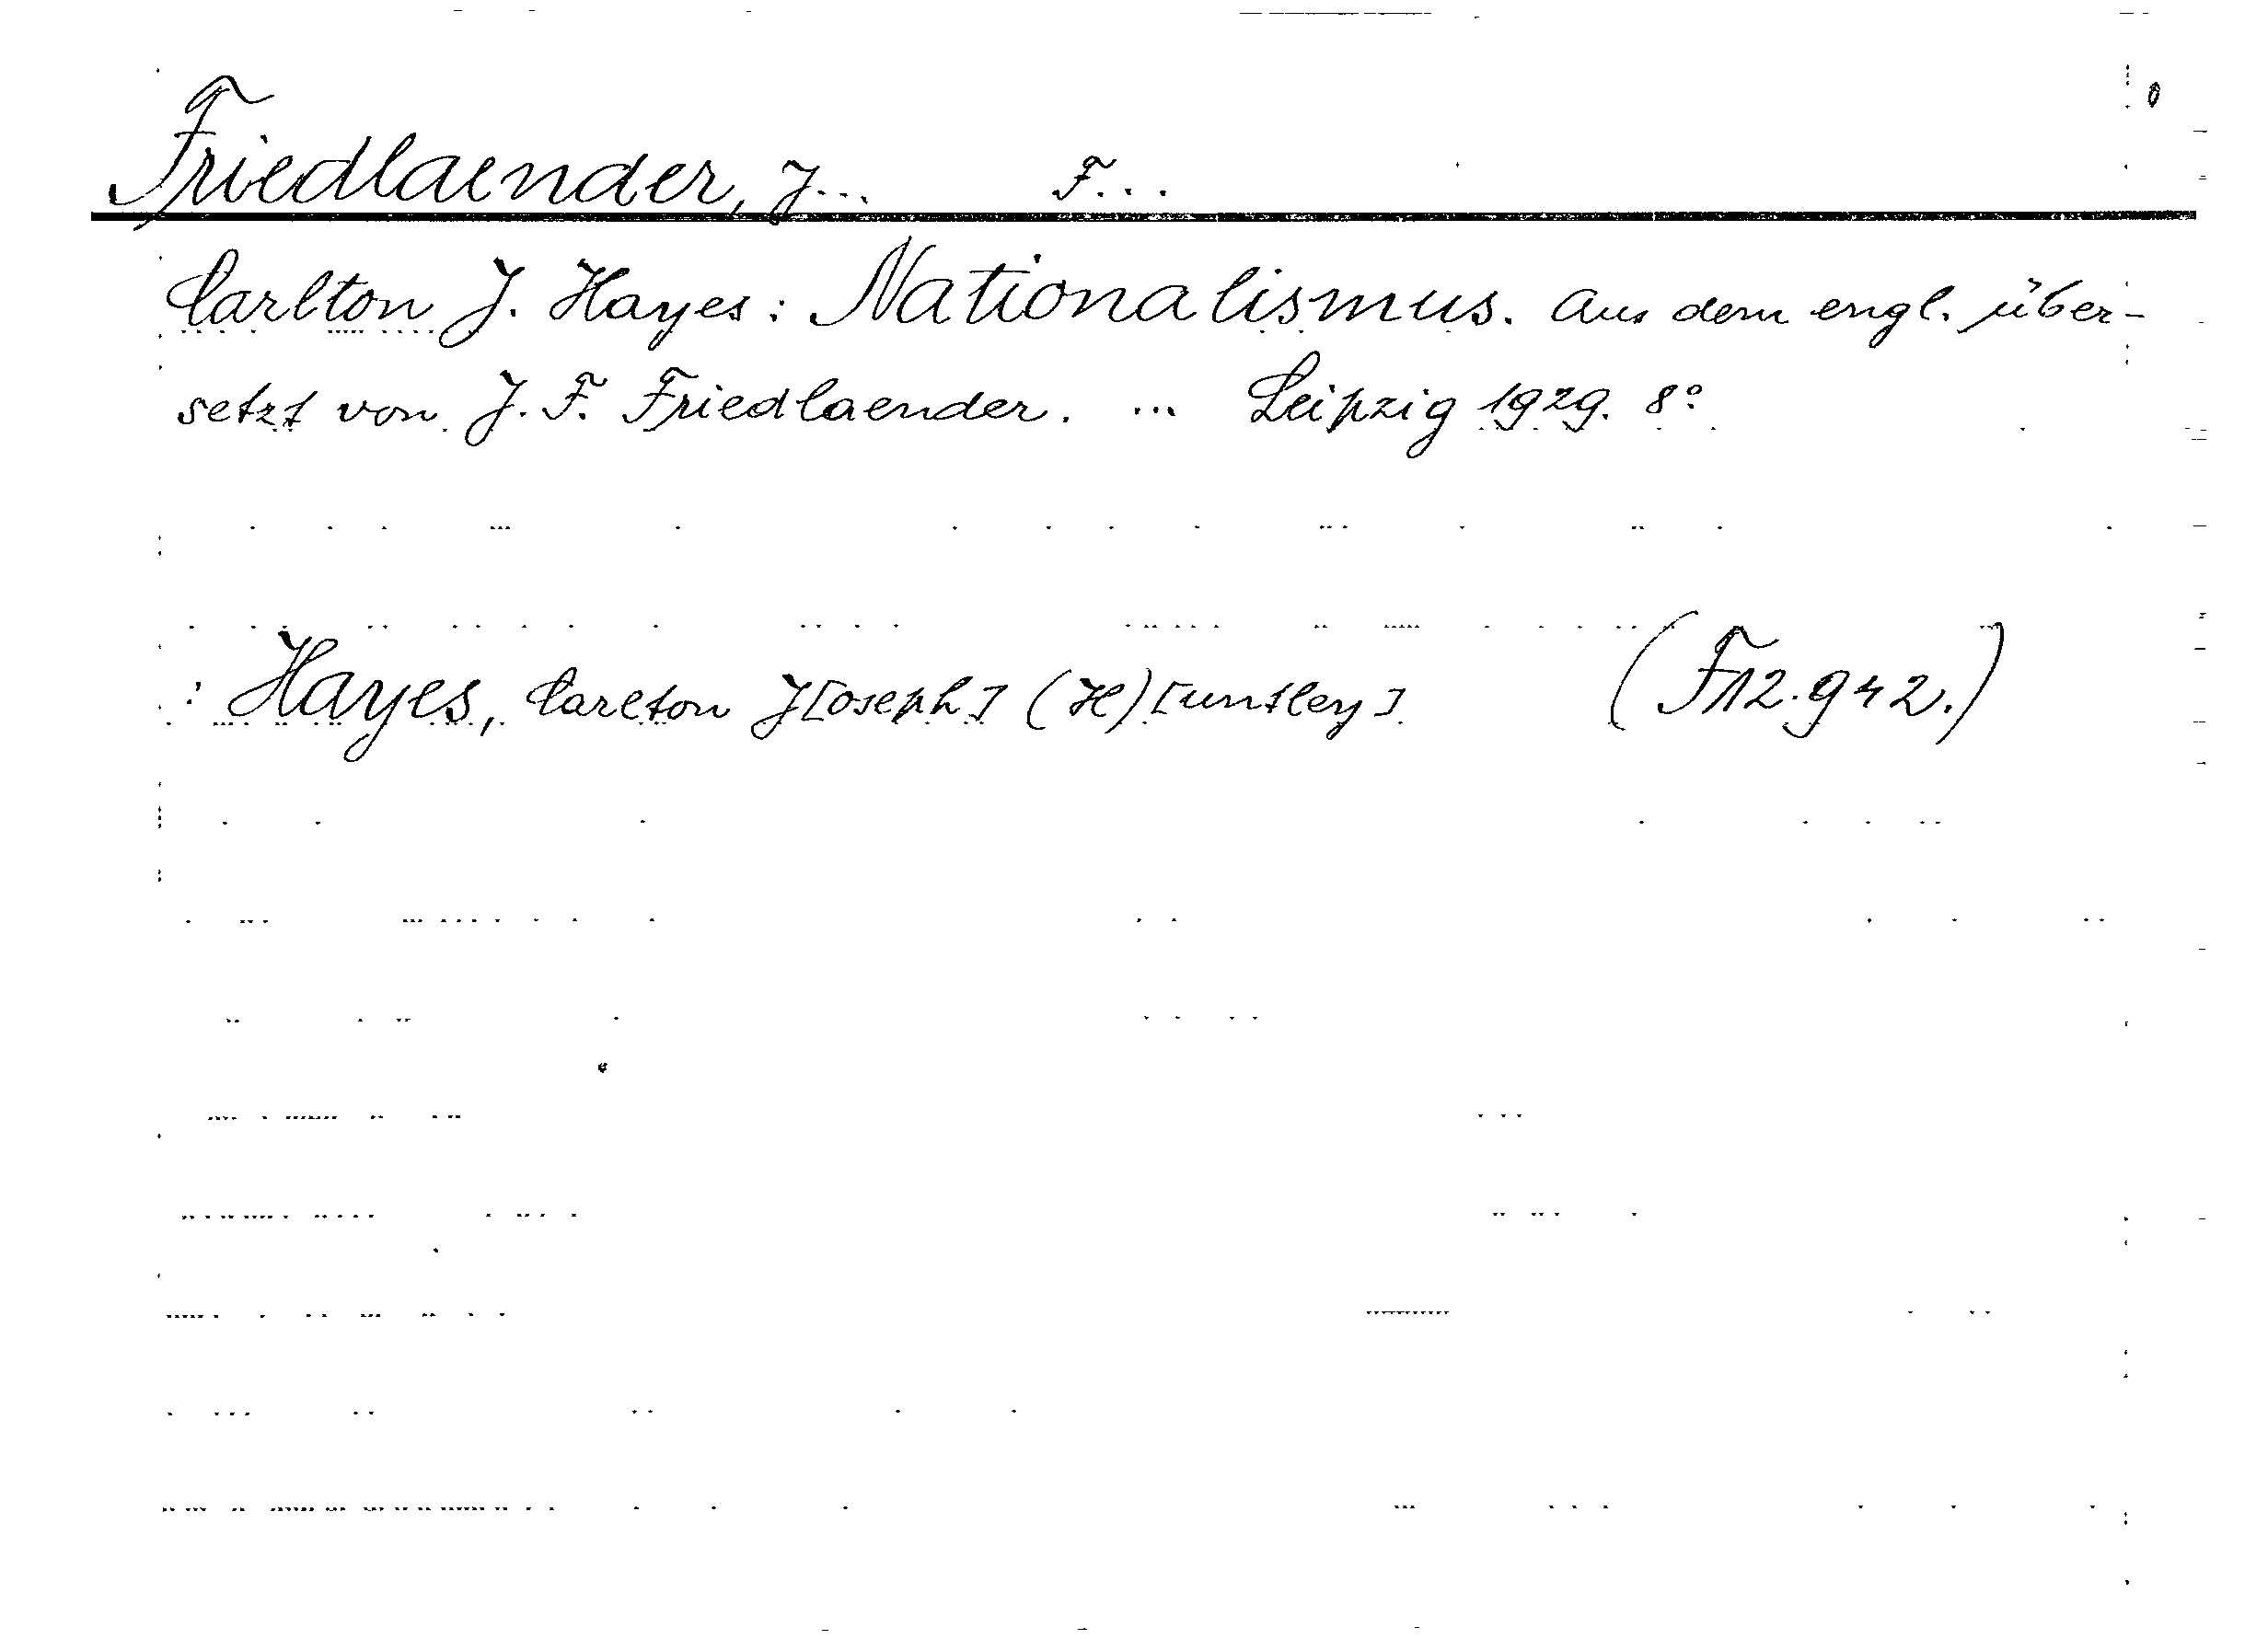 Friedlaender, J... F...
Carlton J. Hayes: Nationalismus. Aus dem engl. über-
setzt von J. F. Friedlaender. ... Leipzig 1929. 8°
: Hayes, Carlton J[oseph] (H)[untley] (F12.942.)